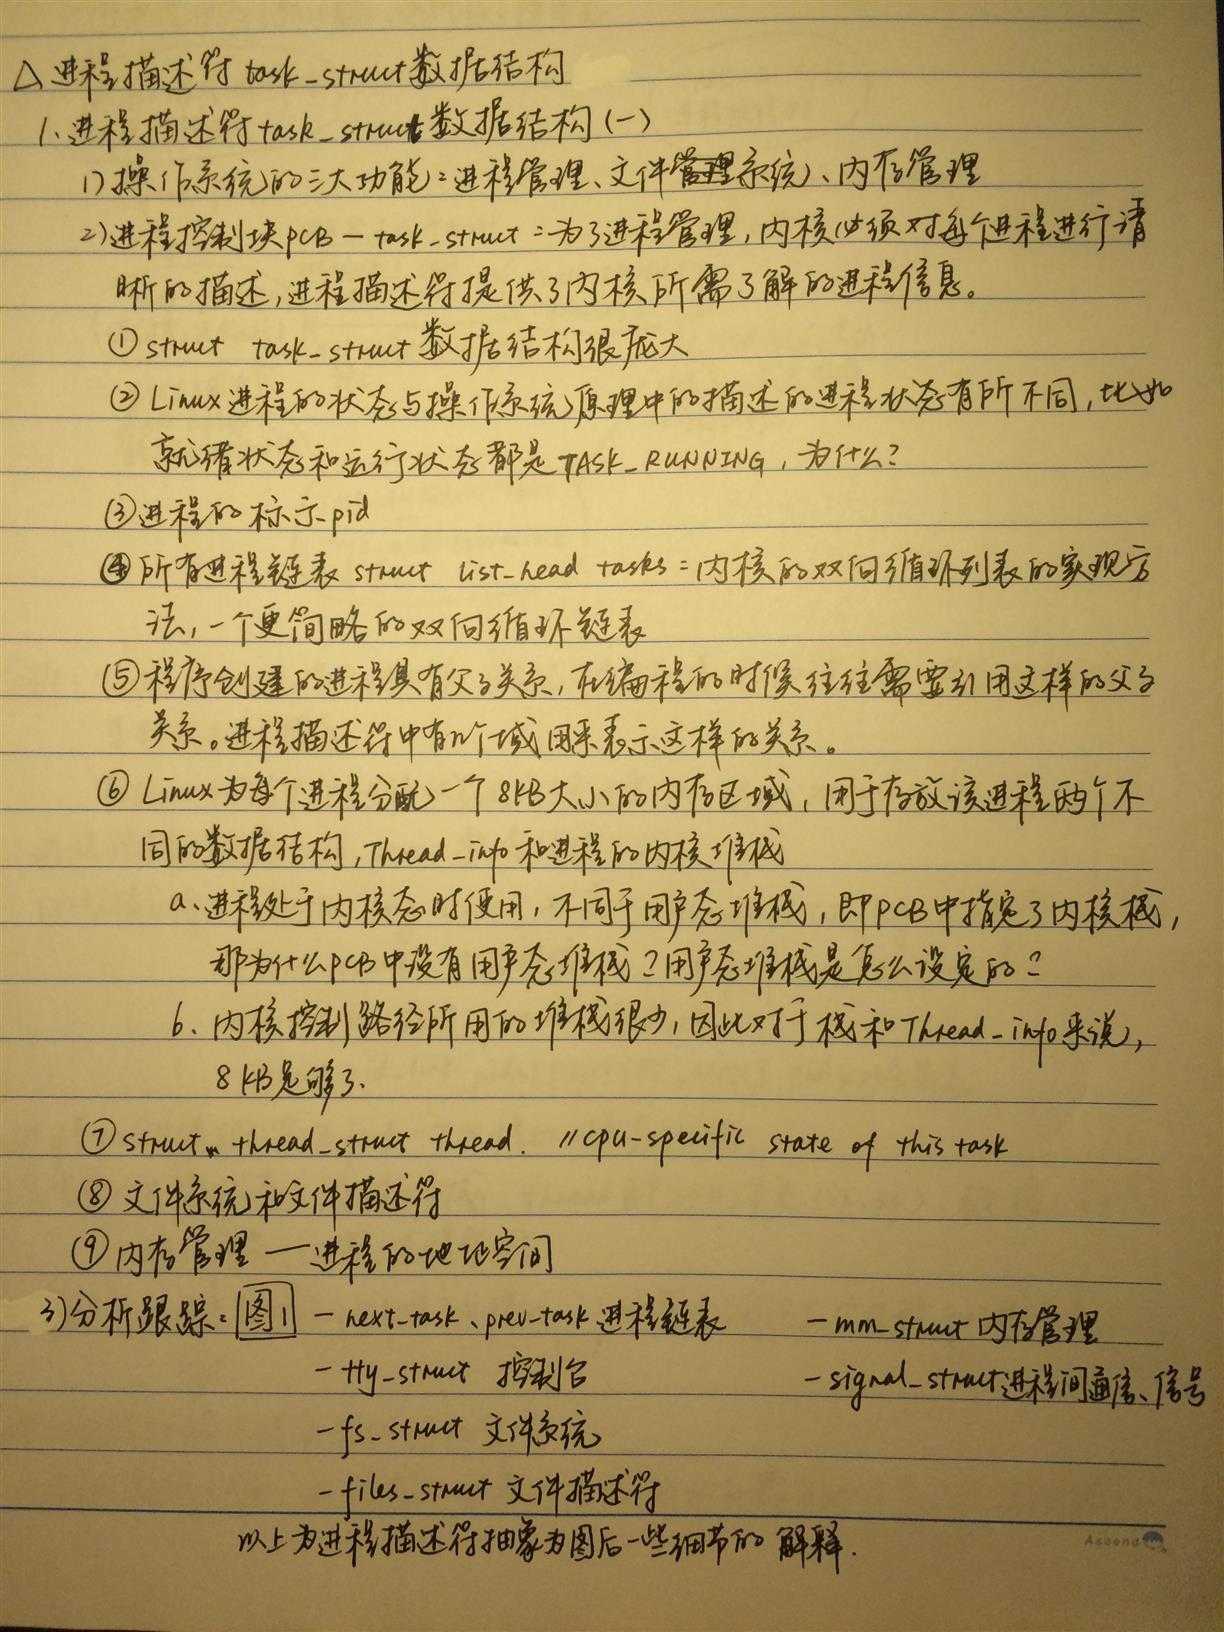 △进程描述符task_struct数据结构
1、进程描述符task_struct数据结构(一)
1)操作系统的三大功能:进程管理、文件管理系统、内存管理
2)进程控制块PCB—task_struct:为了进程管理,内核必须对每个进程进行清
晰的描述,进程描述符提供了内核所需了解的进程信息。
①struct task_struct数据结构很庞大
②Linux进程的状态与操作系统原理中的描述的进程状态有所不同,比如
就绪状态和运行状态都是TASK_RUNNING,为什么?
③进程的标示pid
④所有进程链表struct list_head tasks:内核的双向循环列表的实现方
法,一个更简略的双向循环链表
⑤程序创建的进程具有父子关系,在编程的时候往往需要引用这样的父子
关系。进程描述符中有几个域用来表示这样的关系。
⑥Linux为每个进程分配一个8KB大小的内存区域,用于存放该进程两个不
同的数据结构,Thread_info和进程的内核堆栈
a、进程处于内核态时使用,不同于用户态堆栈,即PCB中指定了内核栈,
那为什么PCB中没有用户态堆栈?用户态堆栈是怎么设定的?
b、内核控制路径所用的堆栈很少,因此对于栈和Thread_info来说,
8KB足够了.
⑦struct thread_struct thread. //cpu-specific state of this task
⑧文件系统和文件描述符
⑨内存管理—进程的地址空间
3)分析跟踪:图1 —next_task、prev_task进程链表 —mm_struct内存管理
—tty_struct 控制台 —signal_struct进程间通信、信号
—fs_struct 文件系统
—files_struct 文件描述符
以上为进程描述符抽象为图后一些细节的解释.